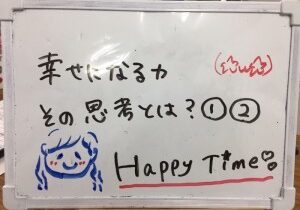 幸せになる力
その思考とは?①②
Happy Time